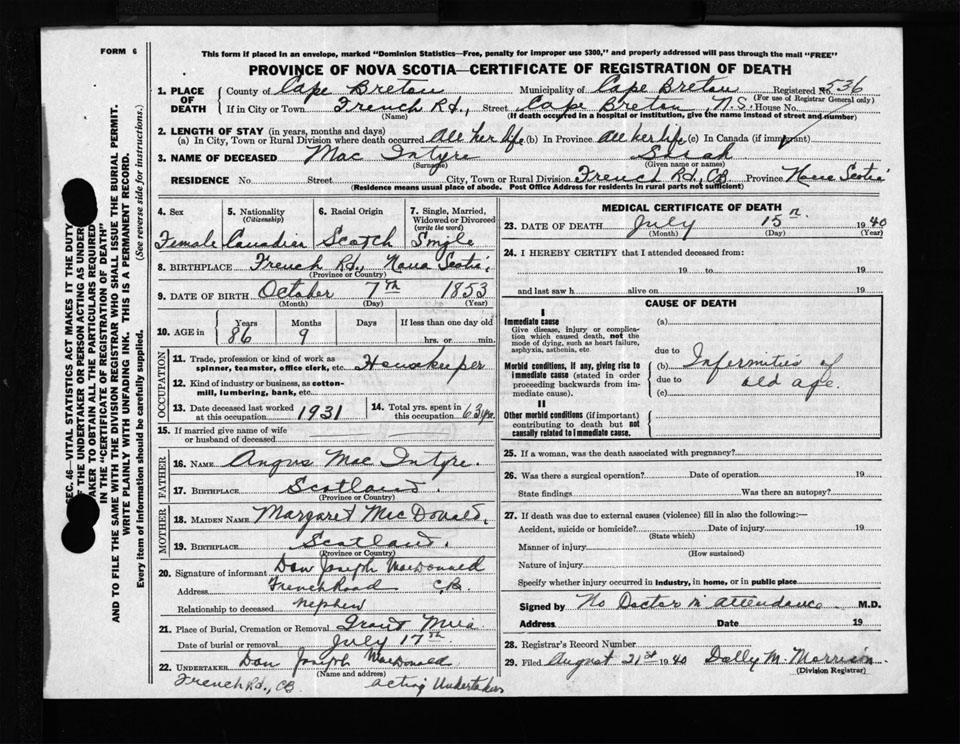 FORM 6
This form if placed in an envelope, marked "Dominion Statistics—Free, penalty for improper use $300," and properly addressed will pass through the mail "FREE"
PROVINCE OF NOVA SCOTIA—CERTIFICATE OF REGISTRATION OF DEATH
SEC. 46 - VITAL STATISTICS ACT MAKES IT THE DUTY
THE UNDERTAKER OR PERSON ACTING AS UNDER
TAKER TO OBTAIN ALL THE PARTICULARS REQUIRED
IN THE "CERTIFICATE OF REGISTRATION OF DEATH"
AND TO FILE THE SAME WITH THE DIVISION REGISTRAR WHO SHALL ISSUE THE BURIAL PERMIT.
WRITE PLAINLY WITH UNFADING INK. THIS IS A PERMANENT RECORD.
Every item of information should be carefully supplied. (See reverse side for instructions.)
1. PLACE OF DEATH County of Cape Breton Municipality of Cape Breton Registered No. 536
(For use of Registrar General only)
If in City or Town French Rd., Street Cape Breton N.S. House No.
(Name) (If death occurred in a hospital or institution, give the name instead of street and number)
2. LENGTH OF STAY (in years, months and days)
(a) In City, Town or Rural Division where death occurred All her life (b) In Province All her life (c) In Canada (if immigrant)
3. NAME OF DECEASED Mac Intyre Sarah
(Surname) (Given name or names)
RESIDENCE No. Street City, Town or Rural Division French Rd., CB Province Nova Scotia
(Residence means usual place of abode. Post Office Address for residents in rural parts not sufficient)
4. Sex Female
5. Nationality (Citizenship) Canadian
6. Racial Origin Scotch
7. Single, Married, Widowed or Divorced (write the word) Single
8. BIRTHPLACE French Rd., Nova Scotia,
(Province or Country)
9. DATE OF BIRTH October 7th 1853
(Month) (Day) (Year)
10. AGE in Years 86 Months 9 Days If less than one day old hrs. or min.
OCCUPATION
11. Trade, profession or kind of work as spinner, teamster, office clerk, etc. Housekeeper
12. Kind of industry or business, as cotton-mill, lumbering, bank, etc.
13. Date deceased last worked at this occupation 1931
14. Total yrs. spent in this occupation 63 yrs.
15. If married give name of wife or husband of deceased
FATHER
16. NAME Angus Mac Intyre.
17. BIRTHPLACE Scotland.
(Province or Country)
MOTHER
18. MAIDEN NAME Margaret MacDonald,
19. BIRTHPLACE Scotland.
(Province or Country)
20. Signature of informant Dan Joseph MacDonald
Address French Road C.B.
Relationship to deceased nephew
21. Place of Burial, Cremation or Removal Grant Mira
Date of burial or removal July 17th
22. UNDERTAKER Dan Joseph MacDonald
(Name and address)
French Rd., CB acting Undertaker
MEDICAL CERTIFICATE OF DEATH
23. DATE OF DEATH July 15th 1940
(Month) (Day) (Year)
24. I HEREBY CERTIFY that I attended deceased from:
19 to 19
and last saw h alive on 19
CAUSE OF DEATH
I
Immediate cause
Give disease, injury or complication which caused death, not the mode of dying, such as heart failure, asphyxia, asthenia, etc.
(a)
due to
Morbid conditions, if any, giving rise to immediate cause (stated in order proceeding backwards from immediate cause).
(b) Infirmities of
due to old age.
(c)
II
Other morbid conditions (if important) contributing to death but not causally related to immediate cause.
25. If a woman, was the death associated with pregnancy?
26. Was there a surgical operation? Date of operation 19
State findings Was there an autopsy?
27. If death was due to external causes (violence) fill in also the following:—
Accident, suicide or homicide? Date of injury 19
(State which)
Manner of injury
(How sustained)
Nature of injury
Specify whether injury occurred in industry, in home, or in public place
Signed by No Doctor in attendance M.D.
Address Date 19
28. Registrar's Record Number
29. Filed August 21st 1940 Dolly M. Morrison
(Division Registrar)